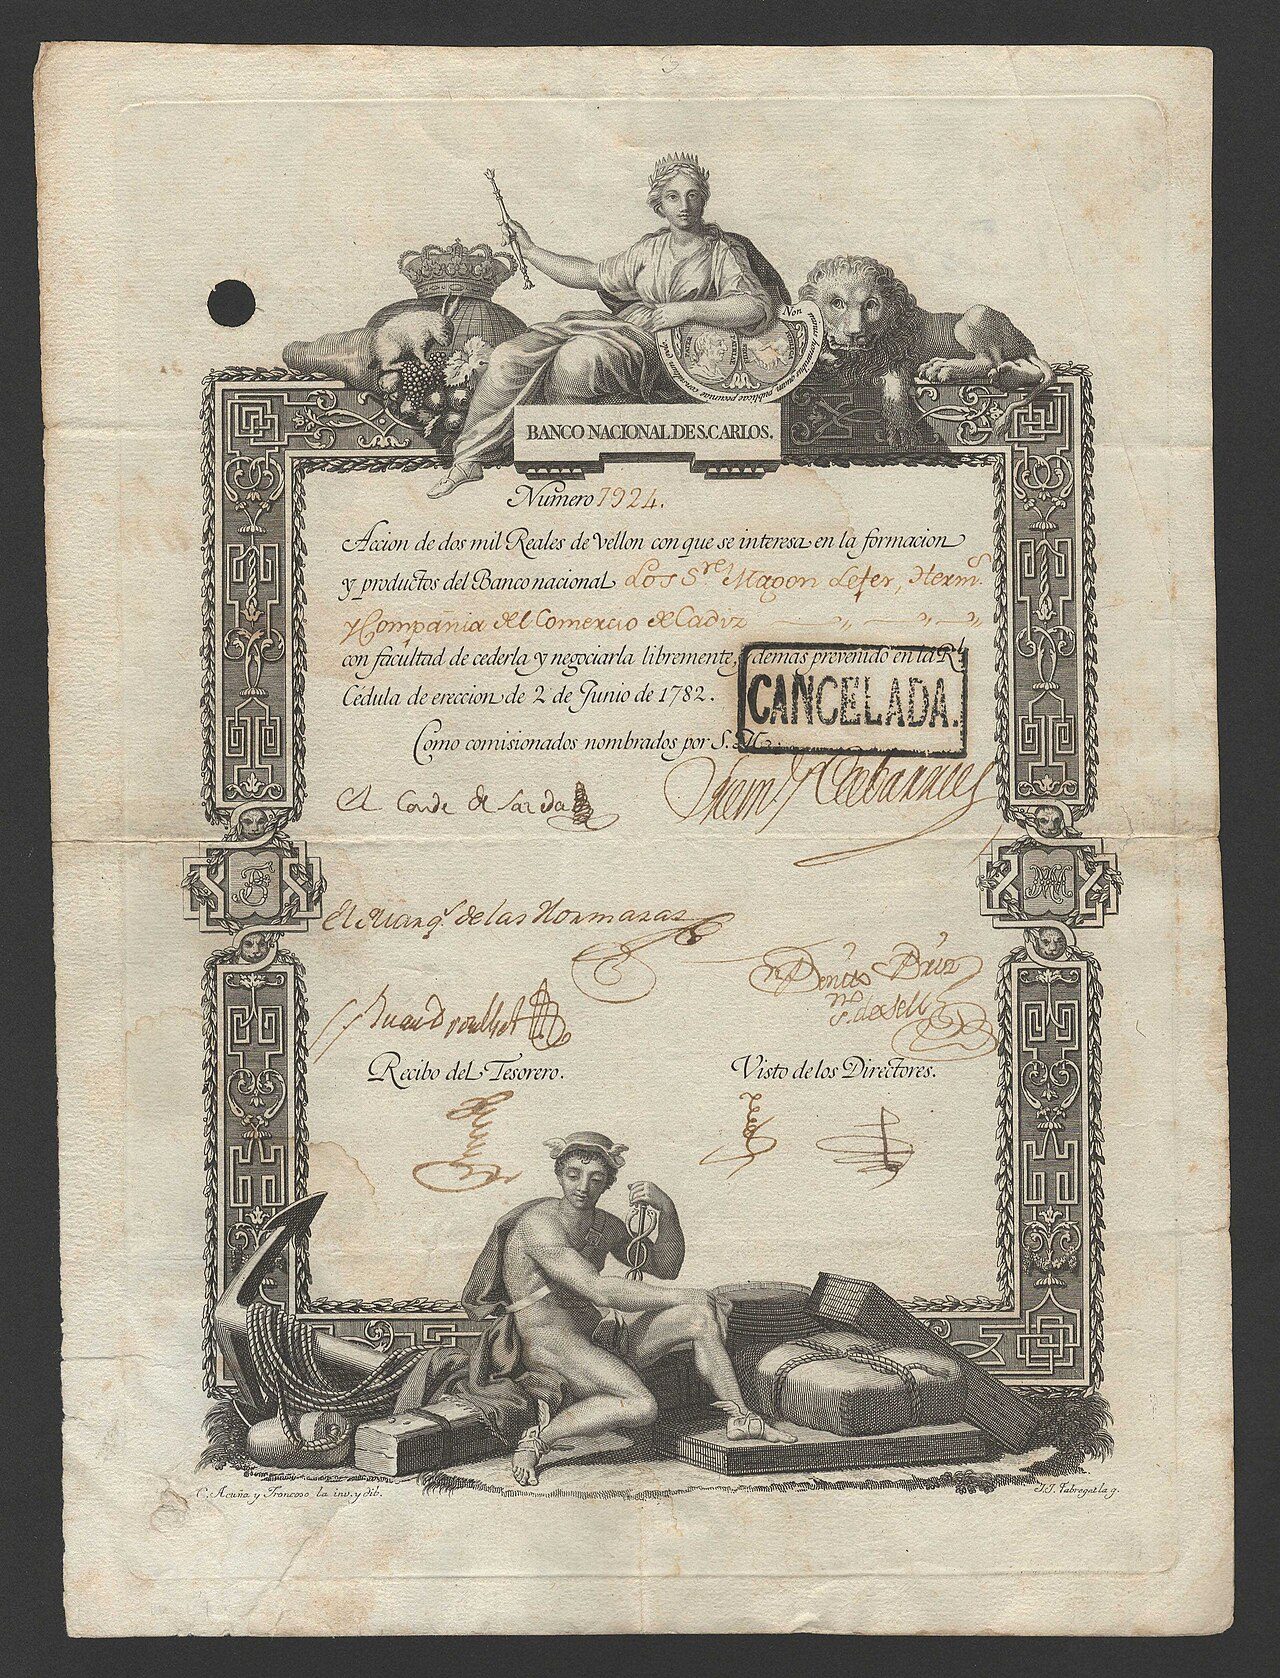 Non
BANCO NACIONAL DE S. CARLOS.
Numero 7924.
Accion de dos mil Reales de Vellon con que se interesa en la formacion
y productos del Banco nacional Los S.res Magon Lefer, Herm.s
y Compañia del Comercio de Cadiz
con facultad de cederla y negociarla libremente, y demas prevenido en la R.l
Cédula de ereccion de 2 de Junio de 1782.
CANCELADA.
Como comisionados nombrados por S. M.
El Conde de Sar
El Marq.s de las Hormazas
Benito Briz
Juan Drouilhet
Recibo del Tesorero.
Visto de los Directores.
C. Acuña y Troncoso la inv. y dib.
J.J. Fabregat la g.